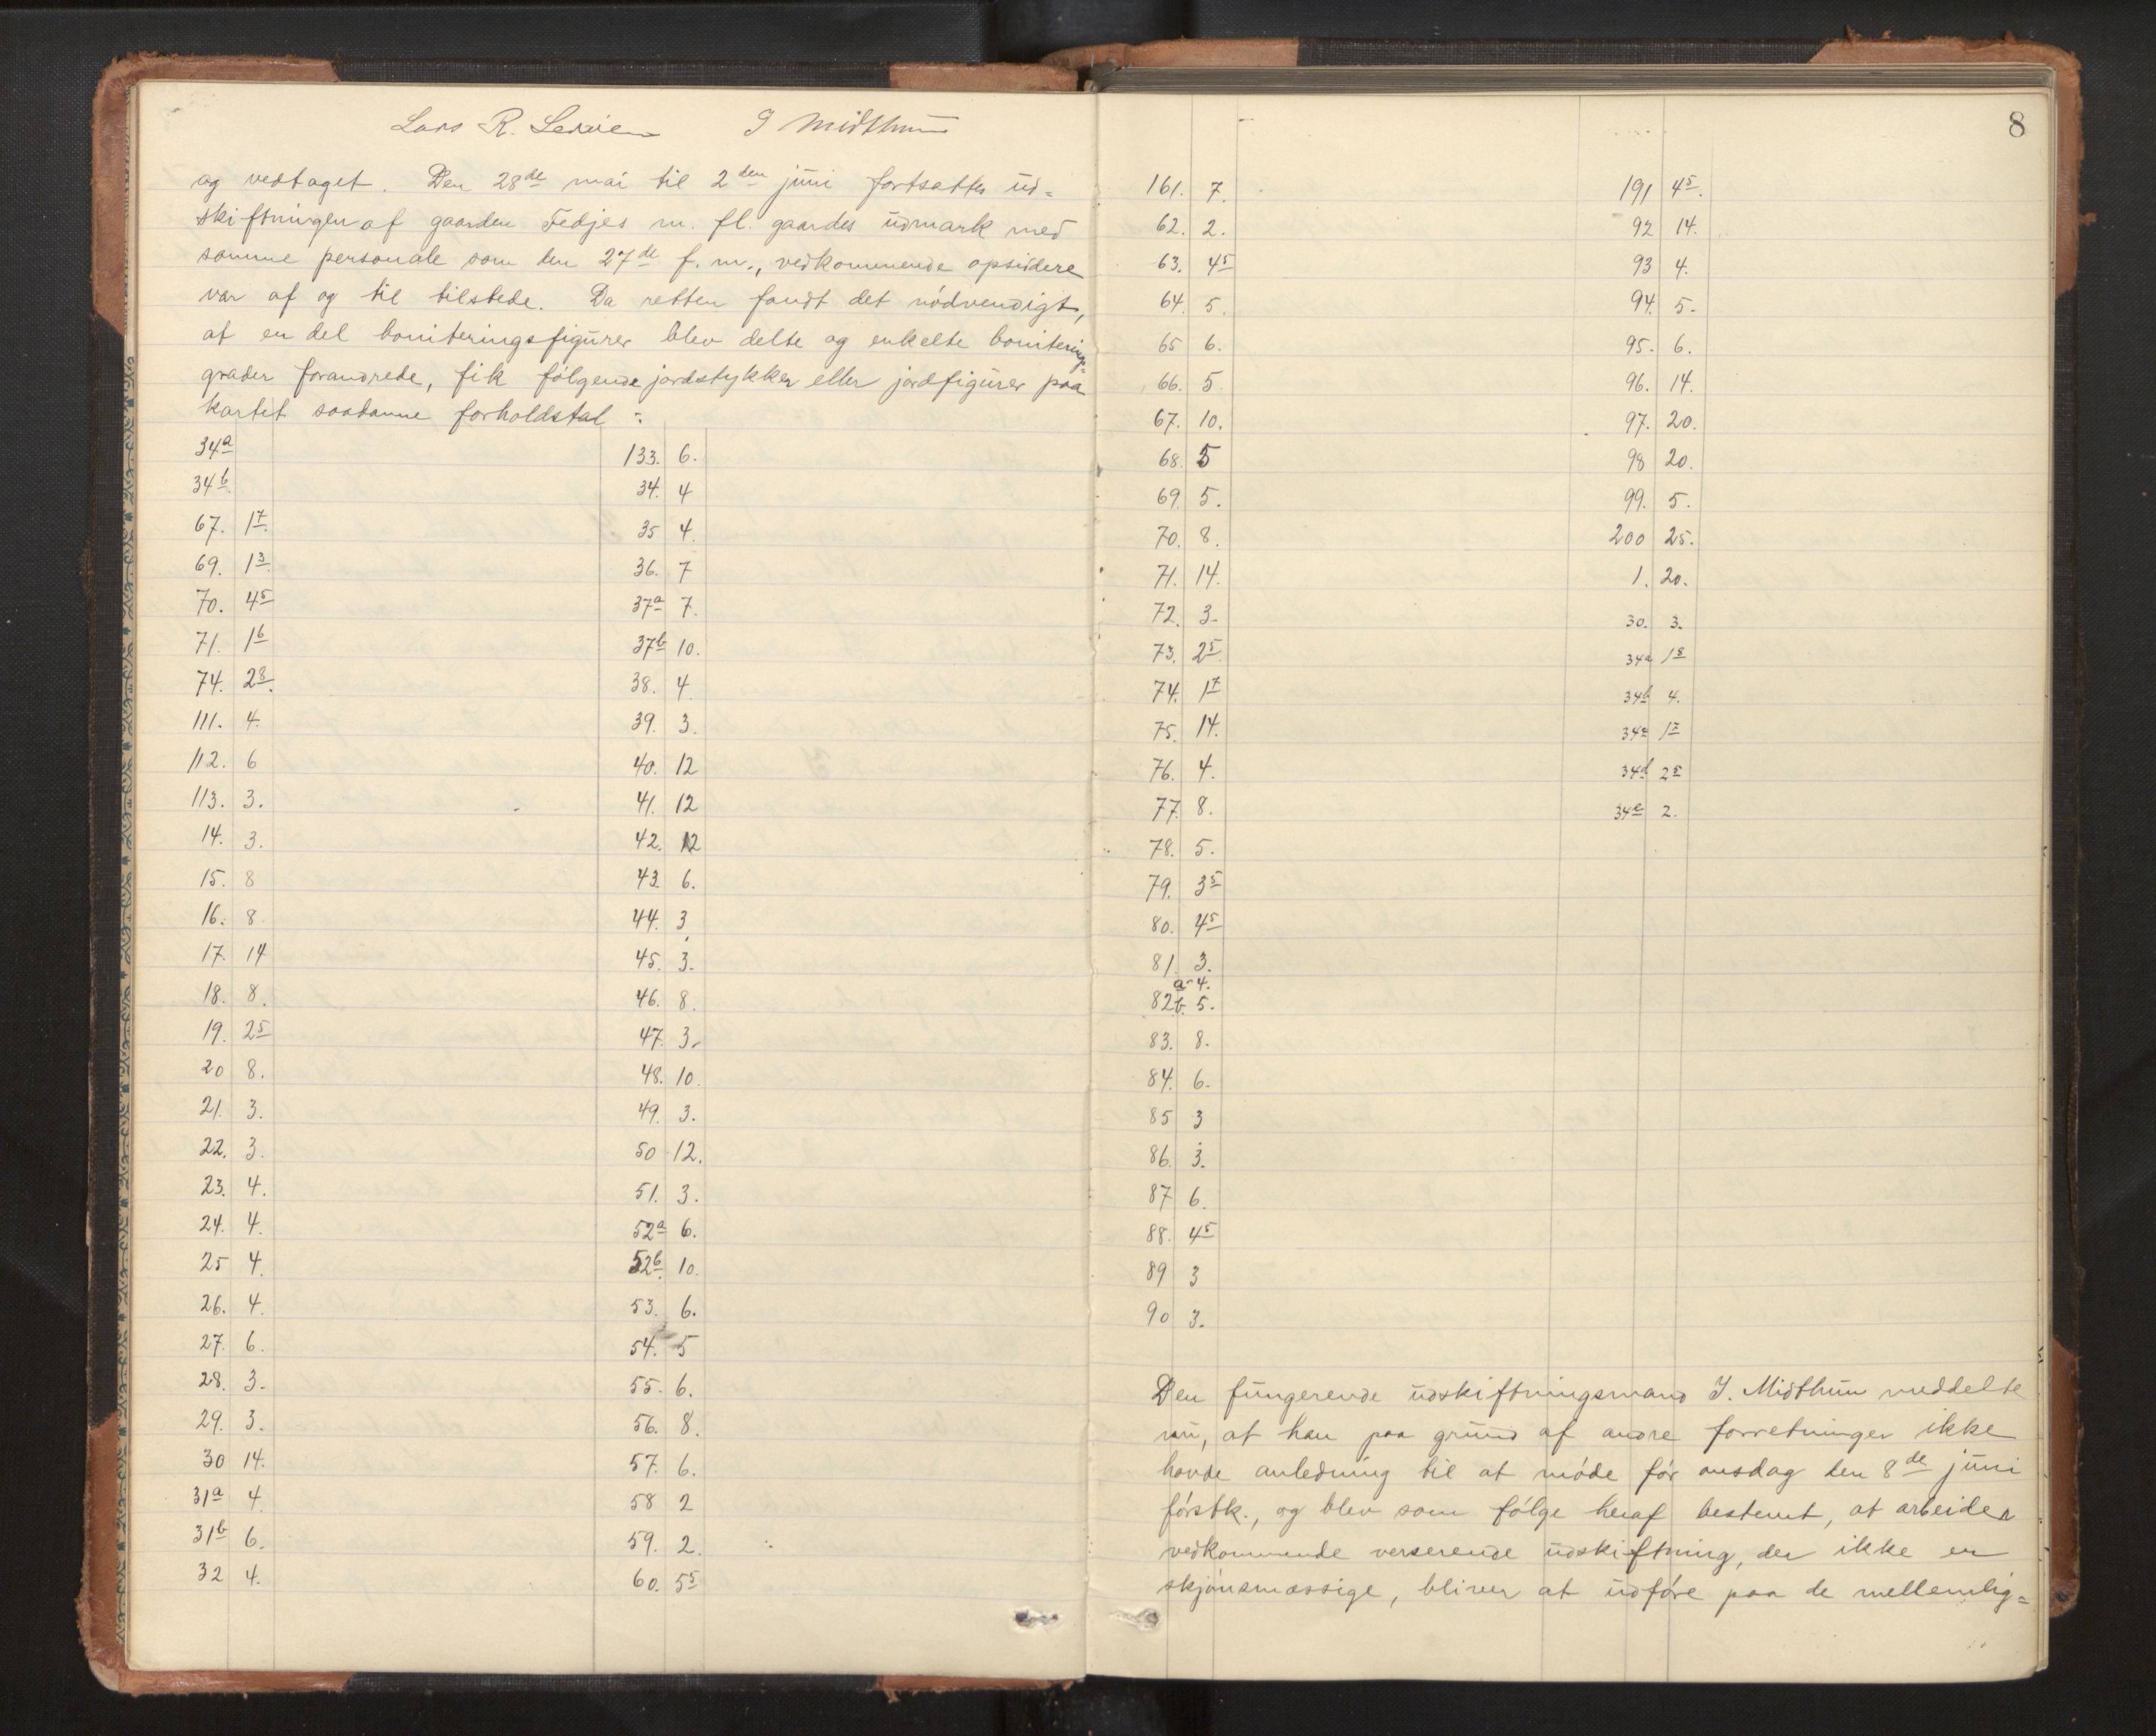 Lars R. I Midthun
og vedtaget. Den 28de mai til 2den juni fortsattes ud=
skiftningen af gaarden Fedjes m. fl. gaardes udmark med
samme personale som den 27de f. m., vedkommende opsiddere
var af og til tilstede. Da retten fandt det nödvendigt,
at en del boniteringsfigurer blev delte og enkelte boniterings=
grader forandrede, fik fölgende jordstykker eller jordfigurer paa
kartet saadanne forholdstal :
34a
34b.
67. 17.
69. 13.
70. 45
71. 16
74. 28.
111. 4.
112. 6
113. 3.
14. 3.
15. 8
16. 8
17. 14
18. 8.
19. 25
20 8.
21. 3.
22. 3.
23. 4.
24. 4.
25 4.
26. 4.
27. 6.
28. 3.
29. 3.
30 14.
31a 4.
31b 6.
32 4.
133. 6.
34. 4
35 4.
36. 7
37a 7.
37b 10.
38. 4.
39. 3.
40. 12
41. 12
42. 12
43. 6.
44. 3
45. 3.
46. 8.
47. 3.
48. 10.
49. 3.
50 12.
51. 3.
52a 6.
52b. 10.
53. 6.
54. 5
55. 6.
56. 8.
57. 6.
58 2
59. 2.
60. 55
8
161. 7.
62. 2.
63. 45
64. 5.
65 6.
66. 5.
67. 10.
68. 5
69. 5.
70. 8.
71. 14.
72. 3.
73. 25.
74. 17
75. 14.
76. 4.
77. 8.
78. 5.
79. 35
80. 45
81. 3.
a 4.
82b. 5.
83. 8.
84. 6.
85 3
86. 3.
87 6.
88. 45
89 3
90 3.
191 45.
92 14.
93 4.
94. 5.
95. 6.
96. 14.
97. 20.
98 20.
99. 5.
200 25.
1. 20.
30. 3.
34a 18
34b 4.
34c 17
34d 25
34e 2.
Den fungerende udskiftningsmand I. Midthun meddelte
nu, at han paa grund af andre forretninger ikke
havde anledning til at möde för onsdag den 8de juni
förstk., og blev som fölge heraf bestemt, at arbeider
vedkommende verserende udskiftning, der ikke er
skjönsmæssige, bliver at udföre paa de mellemlig=